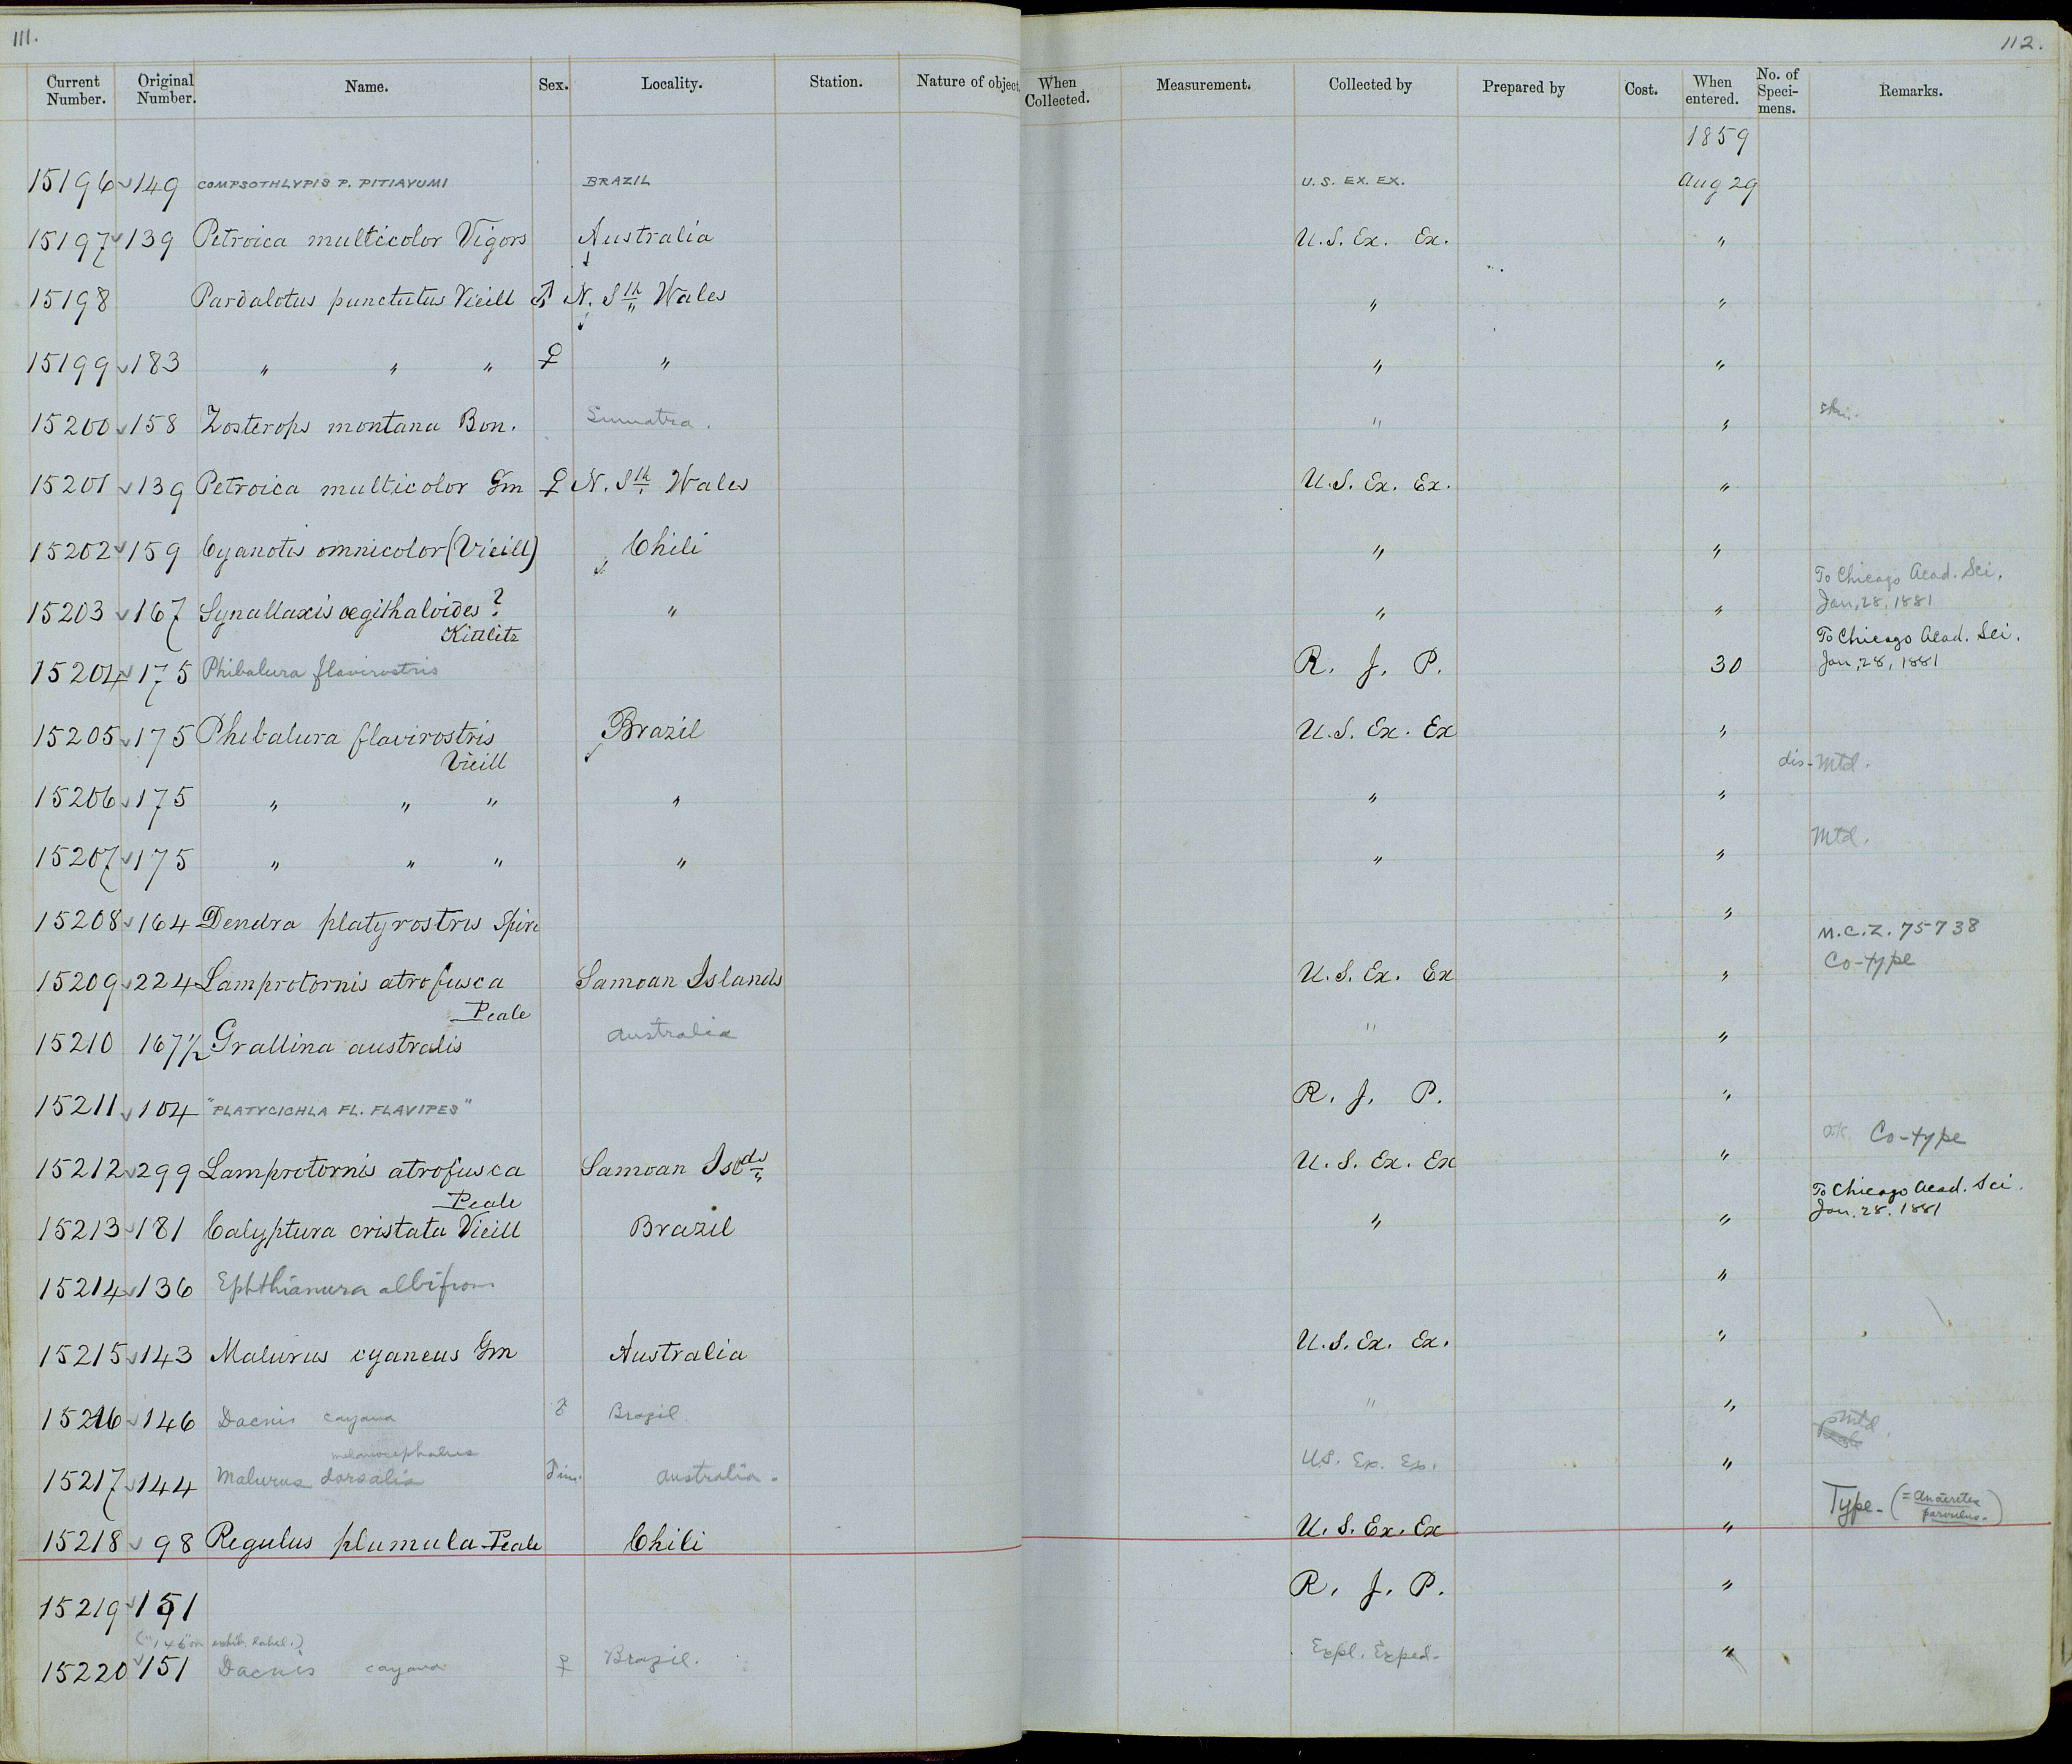 111.
112.
Current Number. Original Number. Name. Sex. Locality. Station. Nature of object When Collected. Measurement. Collected by Prepared by Cost. When entered. No. of Speci- mens. Remarks.
1859
15196 149 COMPSOTHLYPIS P. PITIAYUMI BRAZIL U.S. EX. EX. Aug 29
15197 139 Petroica multicolor Vigors Australia U.S. Ex. Ex. "
15198 Pardalotus punctutus Vieill ♂ N. Sth Wales " "
15199 183 " " " ♀ " " "
15200 158 Zosterops montana Bon. Sumatra. " "
15201 139 Petroica multicolor Gm ♀ N. Sth Wales U.S. Ex. Ex. "
15202 159 Cyanotis omnicolor (Vieill) Chili " "
To Chicago Acad. Sci.
15203 167 Synallaxis ægithaloides ? " " " Jan, 28, 1881
Kittlitz
To Chicago Acad. Sci.
15204 175 Phibalura flavirostris R. J. P. 30 Jan, 28, 1881
15205 175 Phibalura flavirostris Brazil U.S. Ex. Ex "
Vieill
dis- Mtd.
15206 175 " " " " " "
Mtd.
15207 175 " " " " " "
15208 164 Dendra platyrostris Spix "
M.C.Z. 75738
Co-type
15209 224 Lamprotornis atrofusca Samoan Islands U.S. Ex. Ex "
Peale
15210 167½ Grallina australis Australia " "
15211 104 "PLATYCICHLA FL. FLAVIPES" R. J. P. "
Co-type
15212 299 Lamprotornis atrofusca Samoan Islds U.S. Ex. Ex "
Peale
To Chicago Acad. Sci.
Jan. 28. 1881
15213 181 Calyptura cristata Vieill Brazil " "
15214 136 Ephthianura albifrons "
15215 143 Malurus cyaneus Gm Australia U.S. Ex. Ex. "
15216 146 Dacnis cayana ♂ Brazil " "
Mtd.
melanocephalus
15217 144 Malurus dorsalis ♂ im. Australia. U.S. Ex. Ex. "
15218 98 Regulus plumula Peale Chili U.S. Ex. Ex " Type- (= Anæretes
parvulus.)
15219 151 R. J. P. "
("146" on exhib. label.)
15220 151 Dacnis cayana ♀ Brazil. Expl. Exped. "